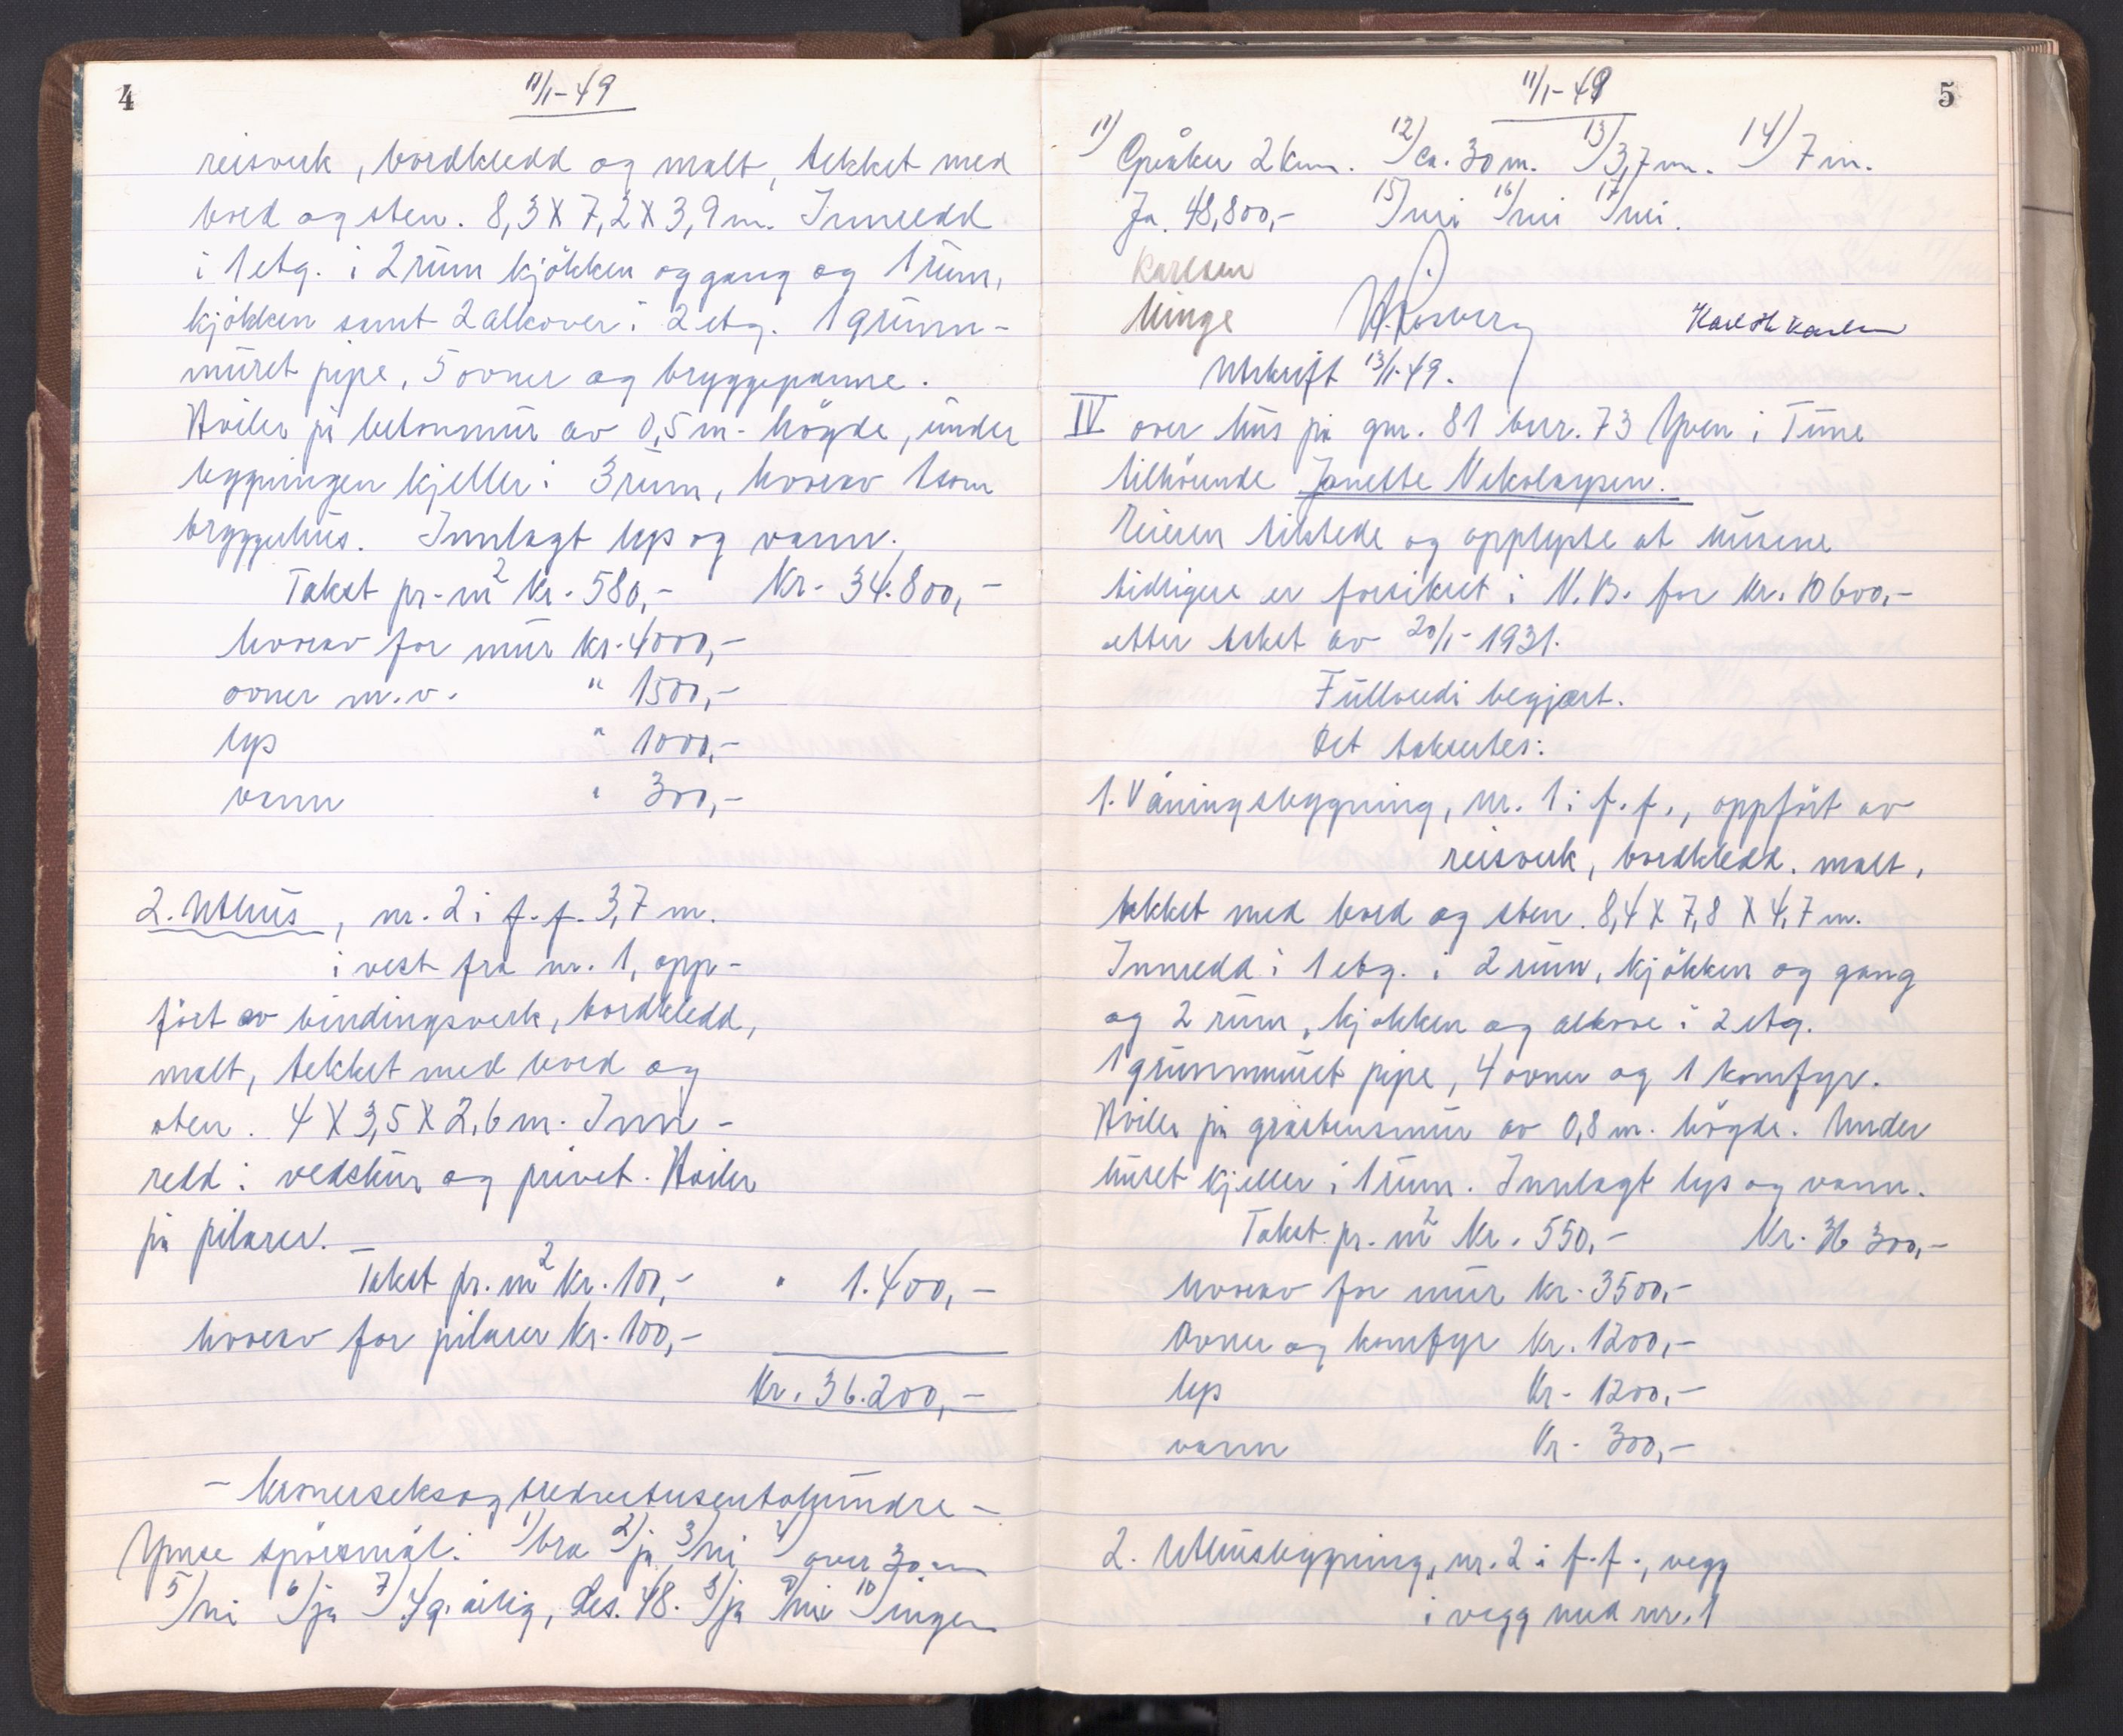 4
11/1-49
reisverk, bordkledd og malt, tekket med
bord og sten. 8,3 X 7,2 X 3,9 m. Innredd
i 1 etg. i 2 rum kjökken og gang og 1 rum,
kjökken samt 2 alkover i 2 etg. 1 grunn-
muret pipe, 5 ovner og bryggepanne.
Hviler på betonmur av 0,5 m. högde, under
bygningen kjeller i 3 rum, hvorav 1 som
bryggerhus. Innlagt lys og vann.
Takst pr. m2 Kr. 580,- Kr. 34.800,-
hvorav for mur kr. 4000,-
ovner m.v. " 1500,-
lys " 1000,-
vann " 300,-
2. Uthus, nr. 2 i f.f. 3,7 m.
i vest fra nr. 1, opp-
fört av bindingsverk, bordkledd,
malt, tekket med bord og
sten. 4 X 3,5 X 2,6 m. Inn-
redd i vedskur og privet. Hviler
på pilarer.
Takst pr. m2 Kr. 100,- " 1.400,-
hvorav for pilarer Kr. 100,-
Kr. 36.200,-
- kronerseksogtredvetusentohundre -
Ymse spörsmål: 1) bra 2) ja 3) nei 4) over 30 m
5) nei 6) ja 7) 4 g. årlig, des. 48. 8) ja 9) nei 10) ingen
5
11/1-49
11) Greåker 2 km. 12) ca. 30 m. 13) 3,7 m. 14) 7 m.
Ja. 48,800,- 15) nei 16) nei 17) nei.
Karlsen
Minge Karl H Karlsen
Utskrift 13/1-49.
IV over hus på gnr. 81 bnr. 73 Yven i Tune
tilhörende Janette Nikolaysen.
Eieren tilstede og opplyste at husene
tidligere er forsikret i N.B. for Kr. 10600,-
etter takst av 20/1-1931.
Fullverdi begjært.
Det taksertes:
1. Våningsbygning, nr. 1 i f.f., oppfört av
reisverk, bordkledd, malt,
tekket med bord og sten. 8,4 X 7,8 X 4,7 m.
Innredd i 1 etg. i 2 rum, kjökken og gang
og 2 rum, kjökken og alkove i 2 etg.
1 grunnmuret pipe, 4 ovner og 1 komfyr.
Hviler på gråstensmur av 0,8 m. högde. Under
huset kjeller i 1 rum. Innlagt lys og vann.
Takst pr. m2 Kr. 550,- Kr. 36 300,-
hvorav for mur kr. 3500,-
Ovner og komfyr Kr. 1200,-
lys Kr. 1200,-
vann Kr. 300,-
2. Uthusbygning, nr. 2 i f.f., vegg
i vegg med nr. 1